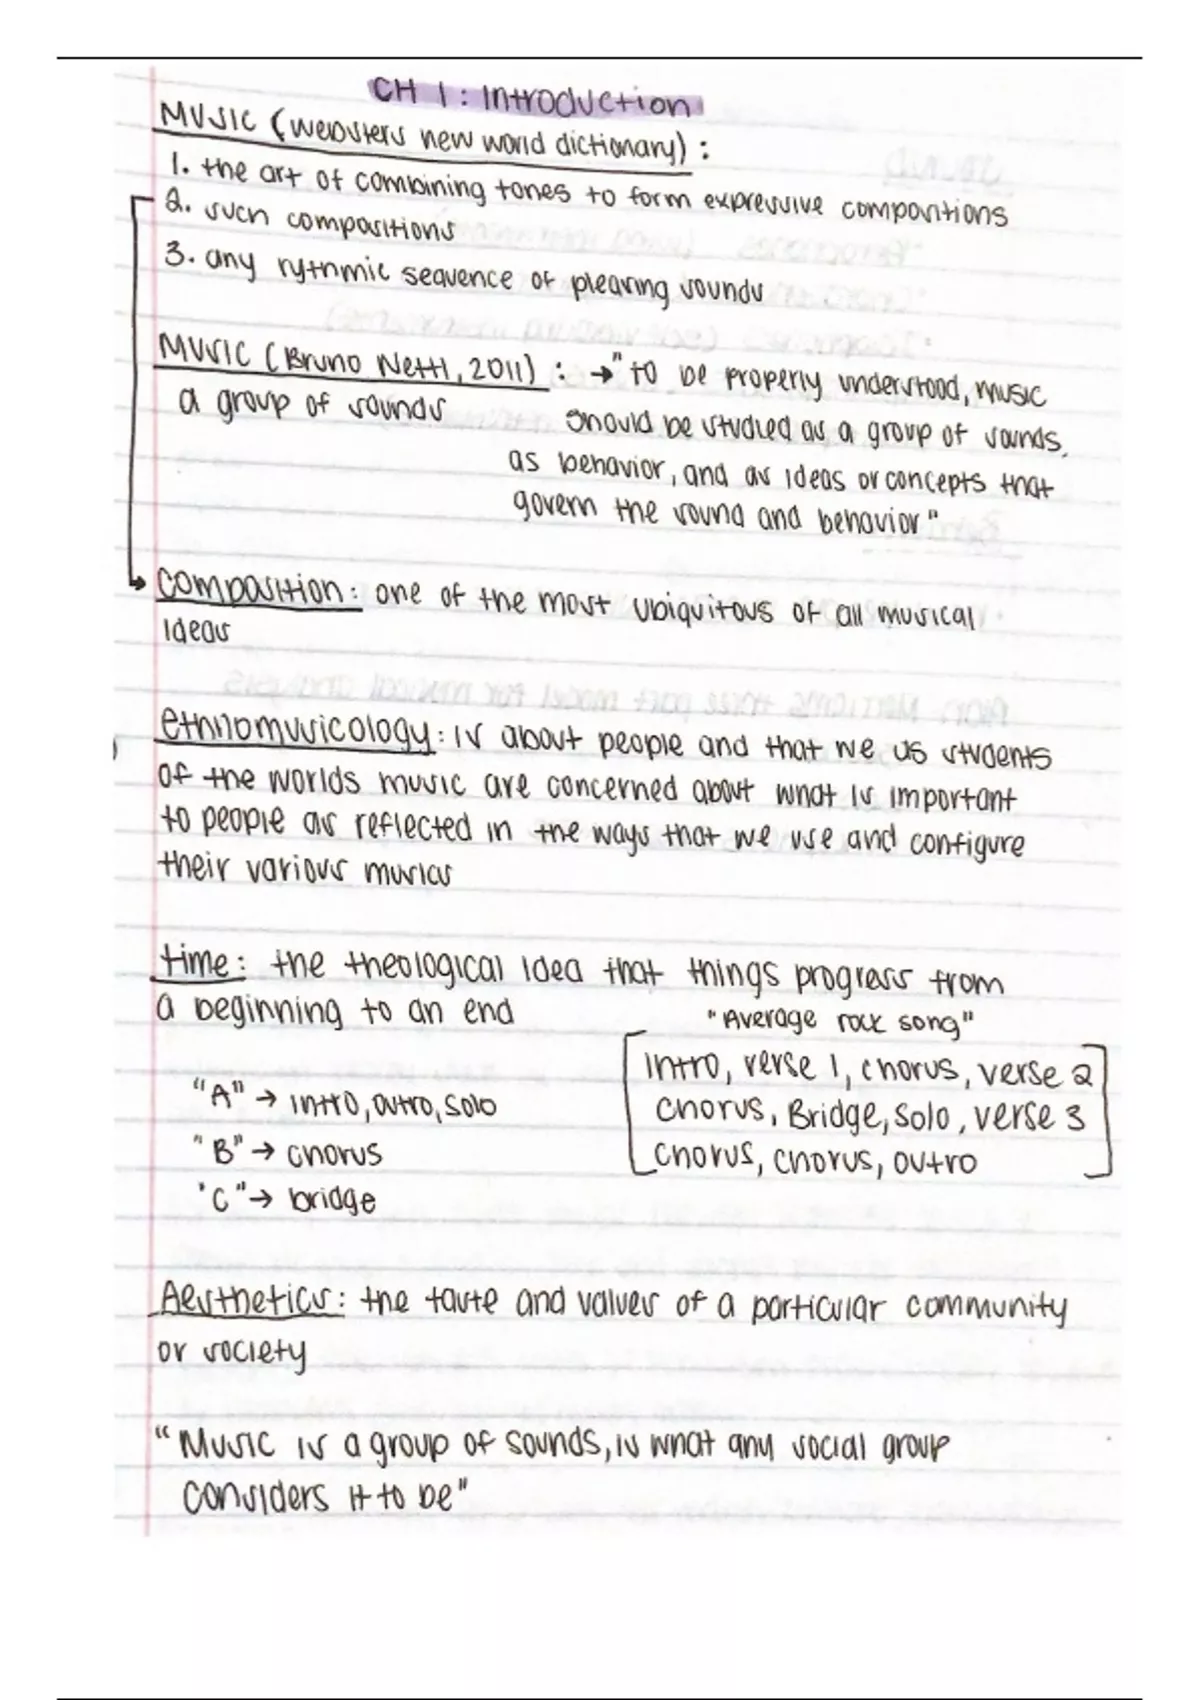 CH 1: Introduction
MUSIC (Websters new world dictionary):
1. the art of combining tones to form expressive compositions
2. such compositions
3. any rythmic sequence of pleasing sounds
MUSIC (Bruno Nettl, 2011): → "to be properly understood, music
a group of sounds should be studied as a group of sounds,
as behavior, and as ideas or concepts that
govern the sound and behavior"
composition: one of the most ubiquitous of all musical
ideas
ethnomusicology: is about people and that we as students
of the worlds music are concerned about what is important
to people as reflected in the ways that we use and configure
their various musics
time: the theological idea that things progress from
a beginning to an end
"Average rock song"
intro, verse 1, chorus, verse 2
chorus, Bridge, solo, verse 3
chorus, chorus, outro
"A" → intro, outro, solo
"B" → chorus
"C" → bridge
Aesthetics: the taste and values of a particular community
or society
"Music is a group of sounds, is what any social group
considers it to be"